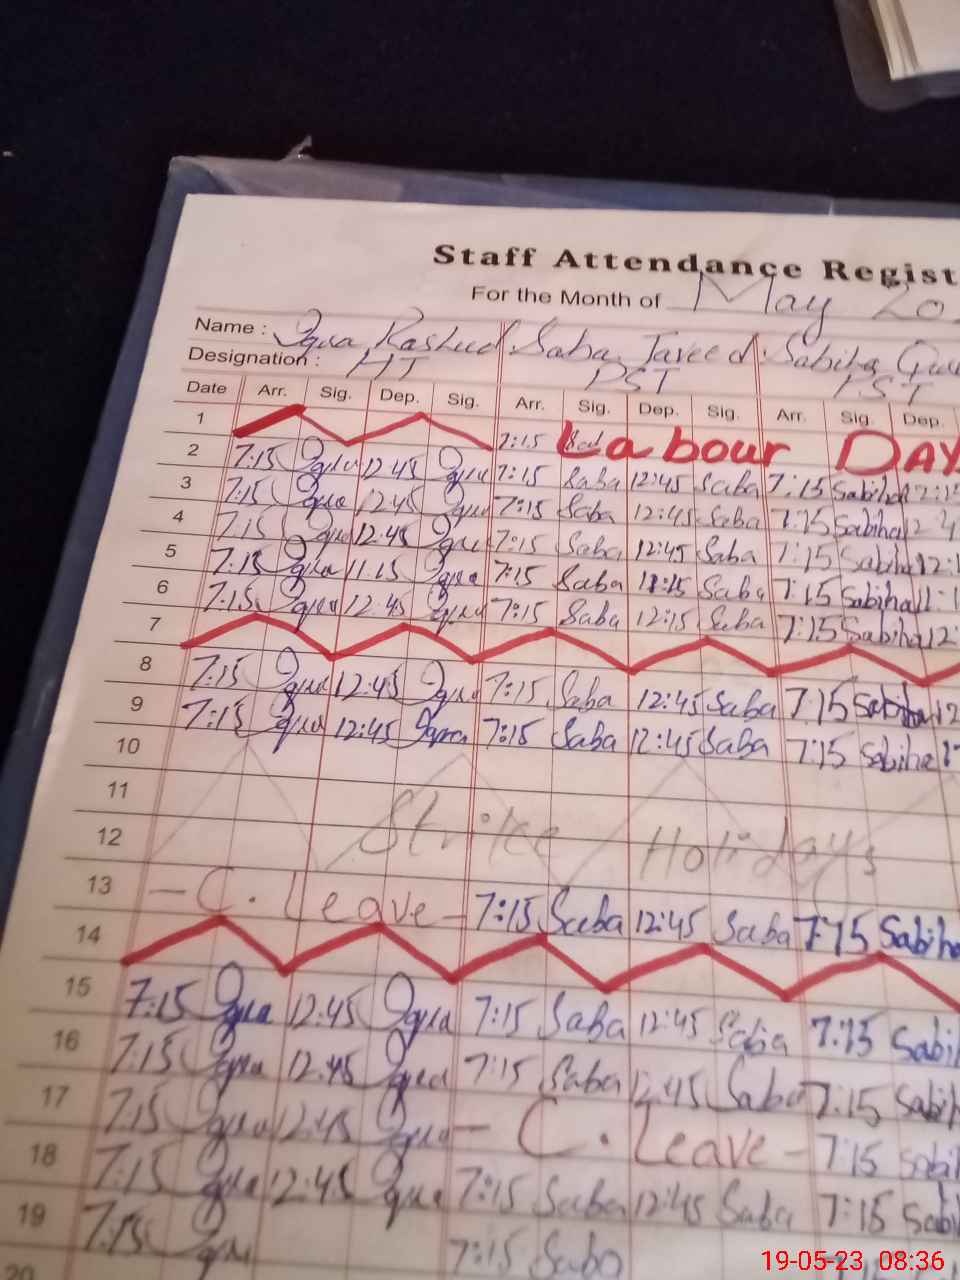 Staff Attendance Regist
For the Month of May 20
Name : Iqra Rashid Saba Javeed Sabiha
Designation : HT PST PST
Date Arr. Sig. Dep. Sig. Arr. Sig. Dep. Sig. Arr. Sig. Dep.
1 7:15 Labour DAY
2 7:15 Iqra 12:45 Iqra 7:15 Saba 12:45 Saba 7:15 Sabiha 12:15
3 7:15 Iqra 12:45 Iqra 7:15 Saba 12:45 Saba 7:15 Sabiha 12:4
4 7:15 Iqra 12:45 Iqra 7:15 Saba 12:45 Saba 7:15 Sabiha 12:1
5 7:15 Iqra 11:15 Iqra 7:15 Saba 11:15 Saba 7:15 Sabiha 11:1
6 7:15 Iqra 12:45 Iqra 7:15 Saba 12:15 Saba 7:15 Sabiha 12:
7
8 7:15 Iqra 12:45 Iqra 7:15 Saba 12:45 Saba 7:15 Sabiha 12
9 7:15 Iqra 12:45 Iqra 7:15 Saba 12:45 Saba 7:15 Sabiha 1
10
11 Strike Holidays
12
13 - C. Leave - 7:15 Saba 12:45 Saba 7:15 Sabiha
14
15 7:15 Iqra 12:45 Iqra 7:15 Saba 12:45 Saba 7:15 Sabi
16 7:15 Iqra 12:45 Iqra 7:15 Saba 12:45 Saba 7:15 Sabih
17 7:15 Iqra 12:45 Iqra - C. Leave - 7:15 Sabi
18 7:15 Iqra 12:45 Iqra 7:15 Saba 12:45 Saba 7:15 Sabi
19 7:15 Iqra 7:15 Saba
20
19-05-23 08:36